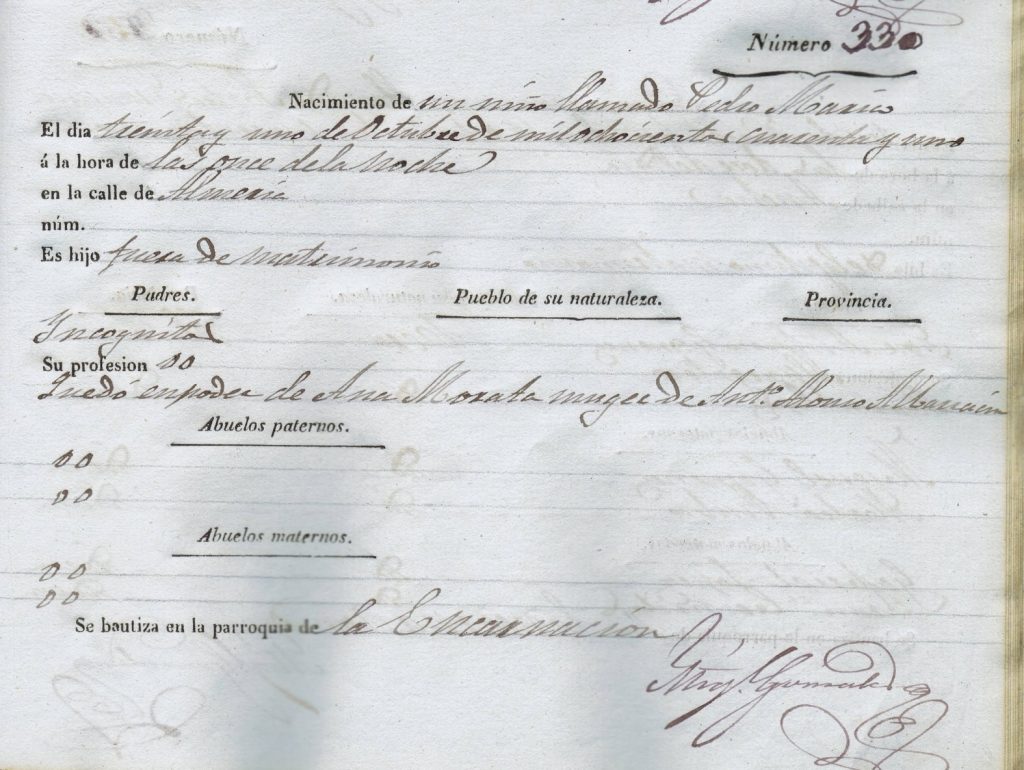 Número 330
Nacimiento de un niño llamado Pedro Maria
El dia treinta y uno de Octubre de mil ochocientos cuarenta y uno
á la hora de las once de la noche
en la calle de Almeria
núm.
Es hijo fuera de matrimonio
Padres. Pueblo de su naturaleza. Provincia.
Incognitos
Su profesion 00
Quedó en poder de Ana Morata muger de Ant.º Alonso Albarracin
Abuelos paternos.
00
00
Abuelos maternos.
00
00
Se bautiza en la parroquia de la Encarnación
Gonzalez